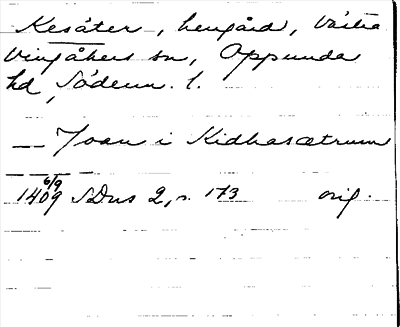 Kesäter, herrgård, Västra
Vingåkers sn, Oppunda
hd, Söderm. l.
— Joan i Kidhasætrum
6/9
1409 SDns 2, s. 173 orig.